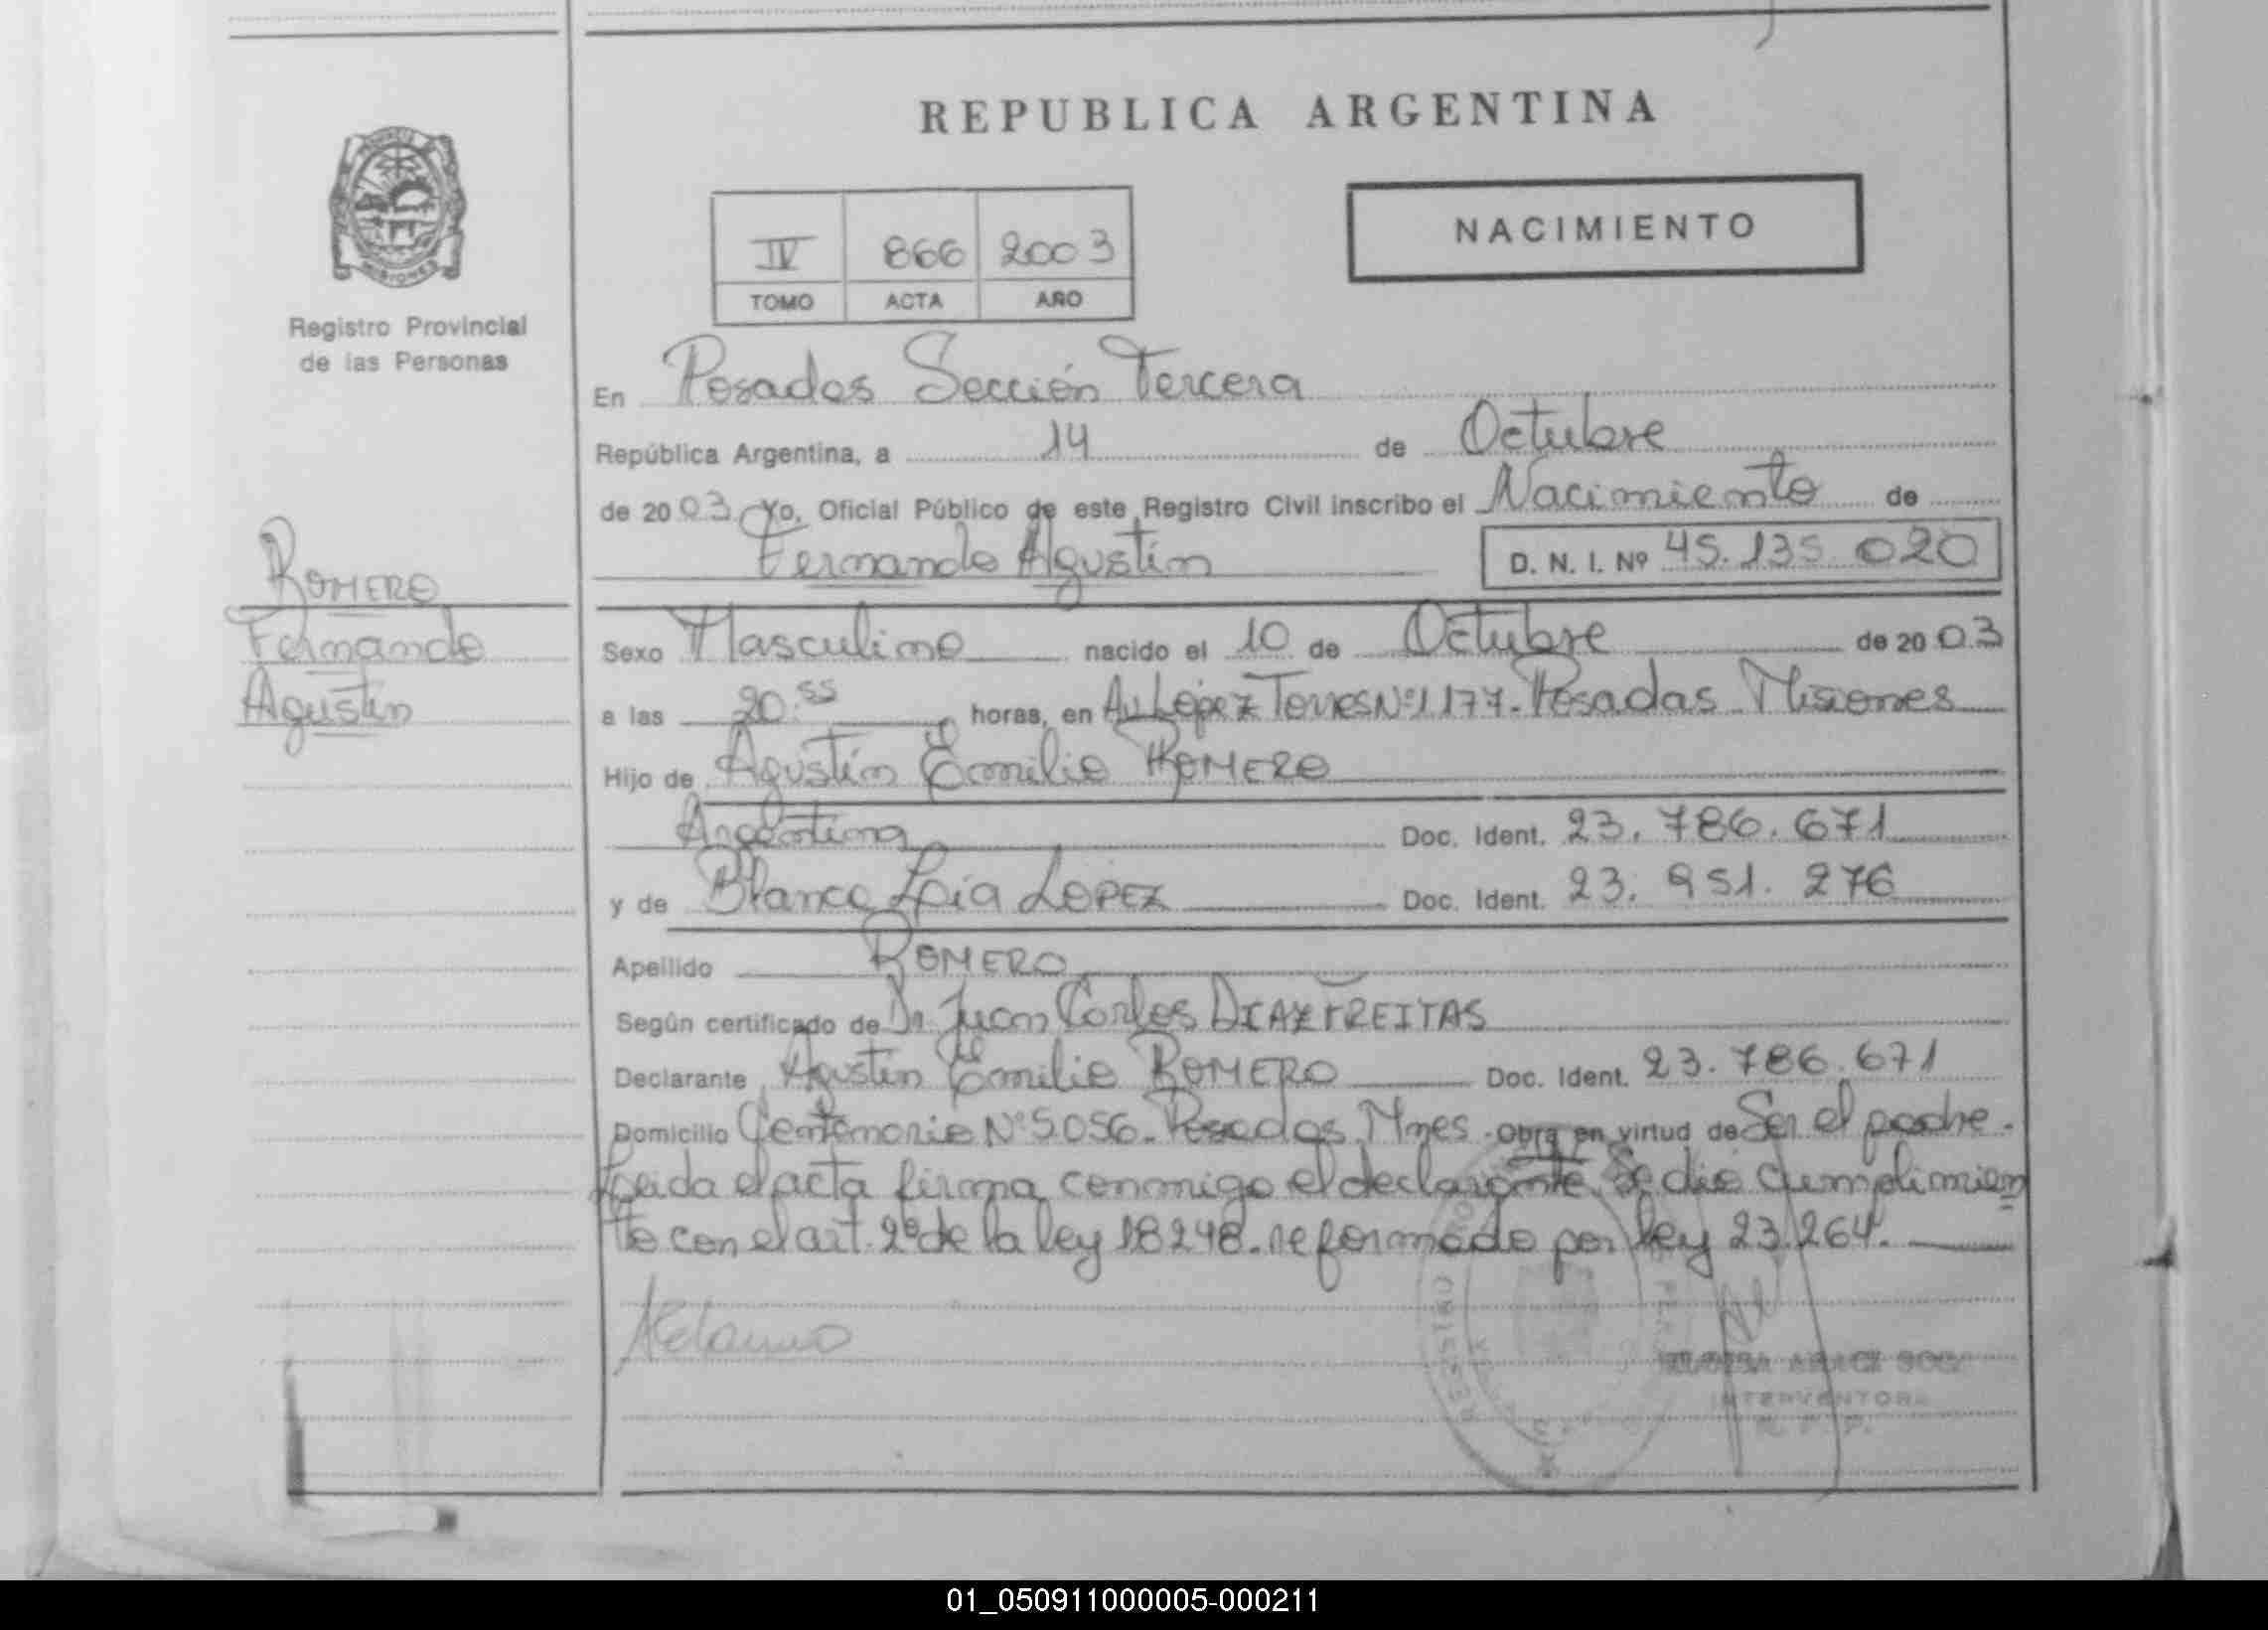 REPUBLICA ARGENTINA
NACIMIENTO
IV 866 2003
TOMO ACTA AÑO
PROVINCIA
MISIONES
Registro Provincial
de las Personas
En Posadas Sección Tercera
República Argentina, a 14 de Octubre
de 2003 Yo, Oficial Público de este Registro Civil inscribo el Nacimiento de
Fernando Agustín
D. N. I. Nº 45.135.020
ROMERO
Fernando
Agustín
Sexo Masculino nacido el 10 de Octubre de 2003
a las 20:55 horas, en Av. López Torres Nº 1177. Posadas Misiones
Hijo de Agustín Emilio ROMERO
Argentina Doc. Ident. 23.786.671
y de Blanca LOPEZ Doc. Ident. 23.951.276
Apellido ROMERO
Según certificado de Dr. Juan Carlos DIAZ FREITAS
Declarante Agustín Emilio ROMERO Doc. Ident. 23.786.671
Domicilio Centenario Nº 5056. Posadas, Mnes. Obra en virtud de Ser el padre.
Leida el acta firma conmigo el declarante. Se dio cumplimien
to con el art. 2º de la ley 18248. reformado por ley 23.264.
REGISTRO
INTERVENTORA
R. P. P.
01_050911000005-000211